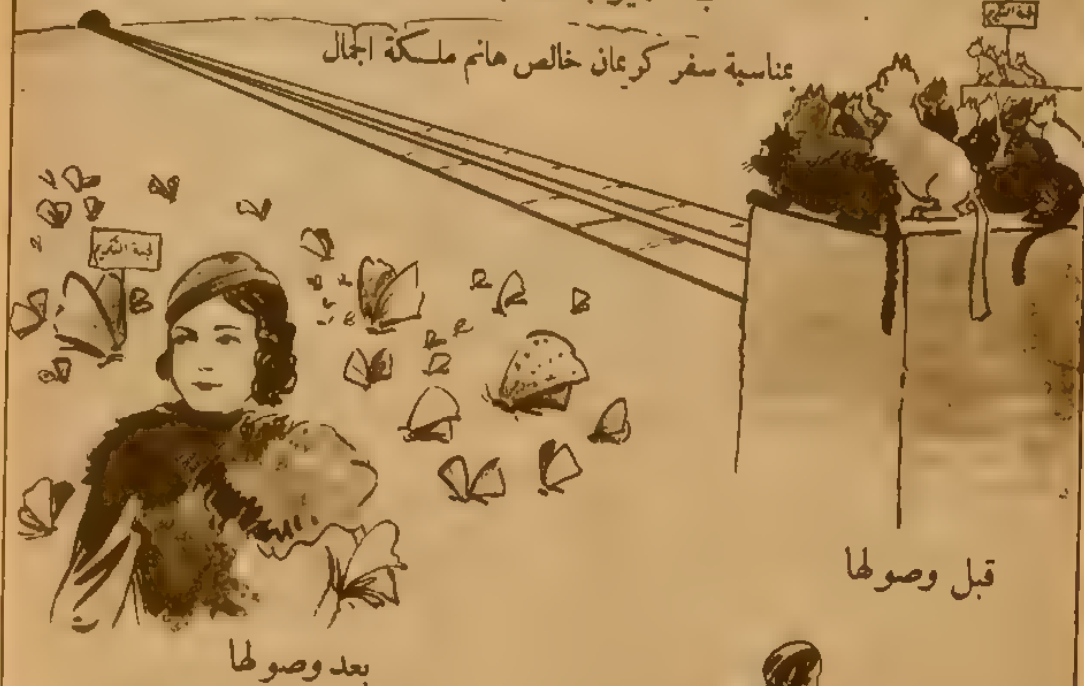 بمناسبة سفر كريمان خالص هانم ملكة الجمال
لجنة التكريم
لجنة التكريم
قبل وصولها
بعد وصولها